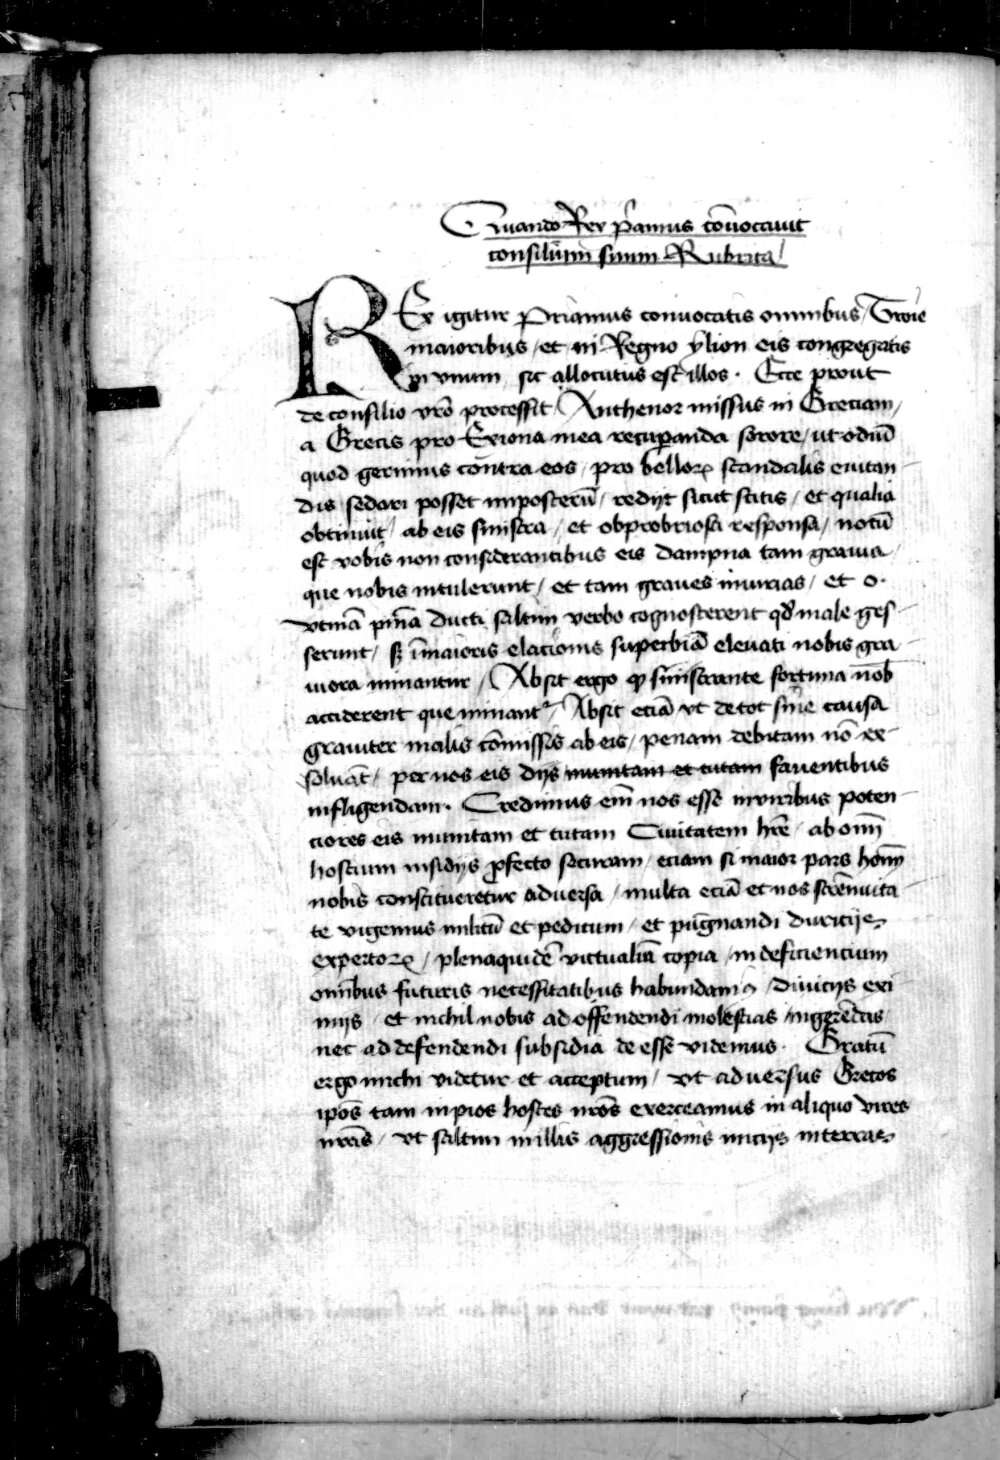 Quando Rex p̃amus cōuocauit
consiliũm suum Rubrica /
REx igitur Priamus conuocatis omnibus / Troie
maioribus / et in Regno ylion eis congregatis
in vnum / sic allocutus est illos · Ecce prout
de consilio vr̄o processit / Anthenor missus in Greciam /
a Grecis pro Exiona mea recuꝑanda sorore / ut odiū
quod gerimus contra eos / pro belloꝝ scandalis euitan-
dis sedari posset imposterū / redijt sicut scitis / et qualia
obtinuit / ab eis sinistra / et obprobriosa responsa / notū
est vobis non considerantibus eis dampna tam grauia /
que nobis intulerunt / et tam graues iniurias / et o·
vtinā pn̄ia ducti saltim verbo cognoscerent qd̓ male ges-
serunt / sꝫ īmaioris elacionis superbiā eleuati nobis gra-
uiora minantur / Absit ergo ꝙ sinistrante fortuna nob̄
acciderent que minant᷑ / Absit eciā vt de tot sine causa
grauiter malis cōmissis ab eis / penam debitam nō ex-
soluāt / per nos eis dijs munitam et tutam fauentibus
infligendam · Credimus em̄ nos esse inviribus poten-
ciores eis munitam et tutam Ciuitatem hr̄e / ab om̄i
hostium insidijs ꝓfecto securam / eciam si maior pars hom̄
nobis constitueretur aduersa / multa eciā et nos strēnuita-
te vigemus militū et peditum / et pugnandi duricije
expertoꝝ / plenaquidē victualiū copia / in deficiencium
omībus futuris necessitatibus habundam⁹ / diuicijs exi-
mijs / et nichil nobis ad offendendi molestias ingerēdas /
nec ad defendendi subsidia de esse videmus · Gratū
ergo michi videtur et acceptum / vt aduersus Grecos
ip̄os tam inpios hostes nr̄os exerceamus in aliquo vires
nr̄as / vt saltim in illis aggressionis inicijs interras